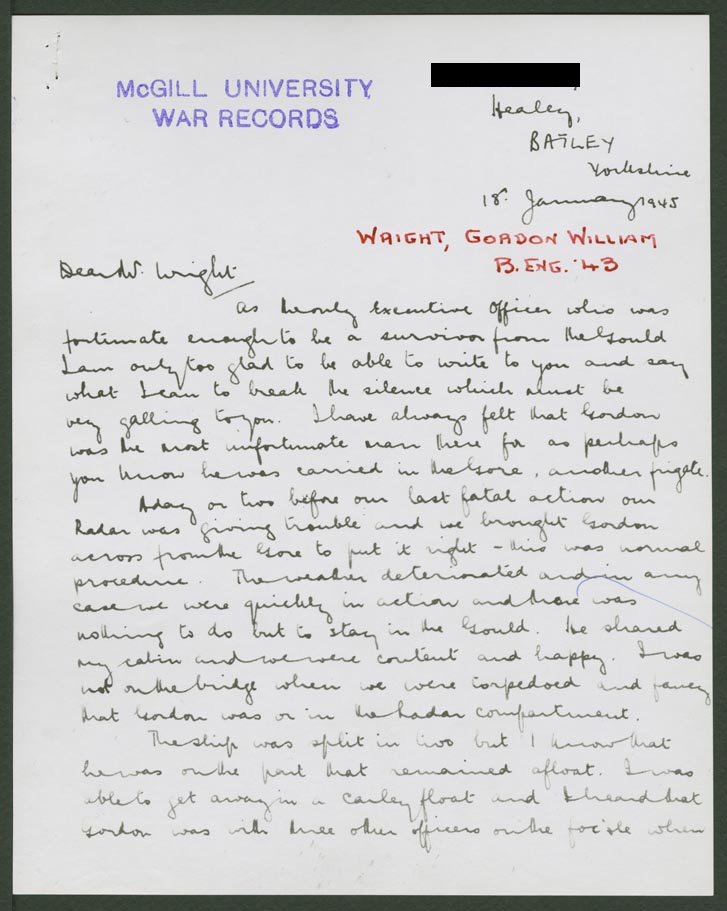 McGILL UNIVERSITY
WAR RECORDS
Healey,
BATLEY
Yorkshire
18. January 1945
WRIGHT, GORDON WILLIAM
B. ENG. '43
Dear Mr. Wright
As the only Executive Officer who was
fortunate enough to be a survivor from the Gould
I am only too glad to be able to write to you and say
what I can to break the silence which must be
very galling to you. I have always felt that Gordon
was the most unfortunate man there for as perhaps
you know he was carried in the Gore, another frigate.
A day or two before our last fatal action our
Radar was giving trouble and we brought Gordon
across from the Gore to put it right - this was normal
procedure. The weather deteriorated and in any
case we were quickly in action and there was
nothing to do but to stay in the Gould. He shared
my cabin and we were content and happy. I was
not on the bridge when we were torpedoed and fancy
that Gordon was or in the Radar compartment.
The ship was split in two but I know that
he was on the part that remained afloat. I was
able to get away in a carley float and I heard that
Gordon was with three other officers on the foc'sle when